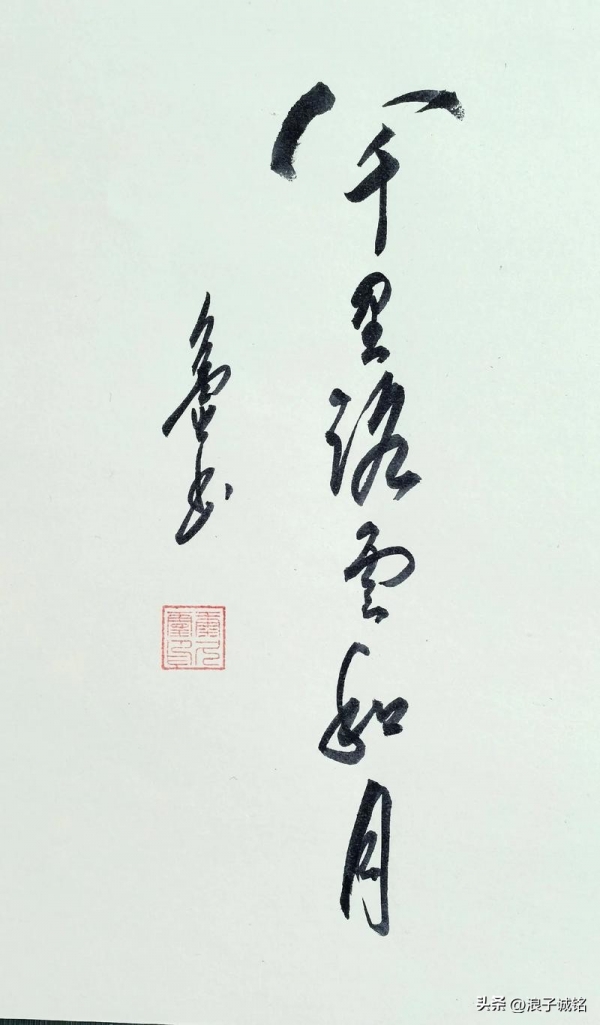 八千里路雲和月
鲁书
头条 @浪子诚铭